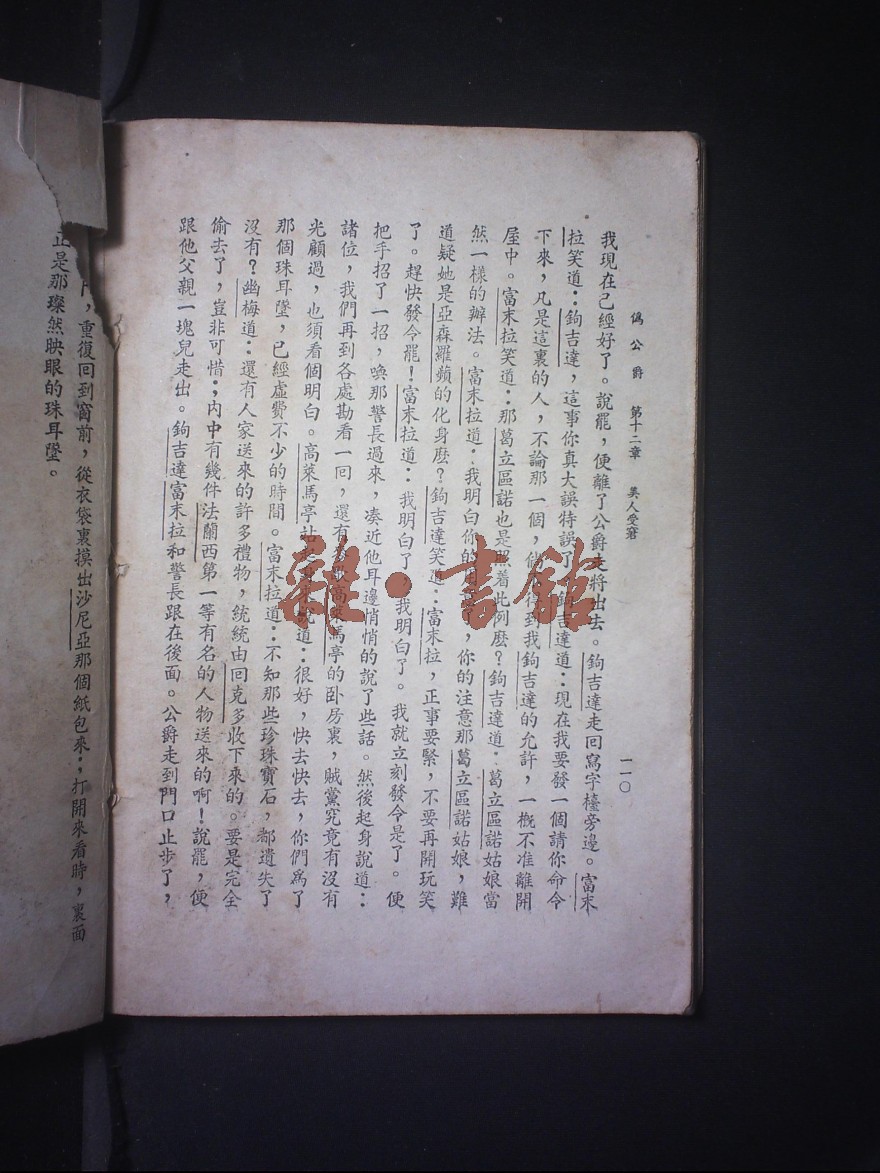 偽公爵 第十二章 美人受窘 一一〇
我現在已經好了。說罷，便離了公爵走將出去。鉤吉達走回寫字檯旁邊。富末
拉笑道：鉤吉達，這事你真大誤特誤了。鉤吉達道：現在我要發一個請你命令
下來，凡是這裏的人，不論那一個，倘得到我鉤吉達的允許，一概不准離開
屋中。富末拉笑道：那葛立區諾也是照着此例麽？鉤吉達道：葛立區諾姑娘當
然一樣的辦法。富末拉道：我明白你的，你的注意那葛立區諾姑娘，難
道疑她是亞森羅蘋的化身麽？鉤吉達笑道：富末拉，正事要緊，不要再開玩笑
了。趕快發令罷！富末拉道：我明白了，我明白了。我就立刻發令是了。便
把手招了一招，喚那警長過來，凑近他耳邊悄悄的說了些話。然後起身說道：
諸位，我們再到各處勘看一回，還有高萊馬亭的卧房裏，賊黨究竟有沒有
光顧過，也須看個明白。高萊馬亭站說道：很好，快去快去，你們爲了
那個珠耳墜，已經虛費不少的時間。富末拉道：不知那些珍珠寶石，都遺失了
沒有？幽梅道：還有人家送來的許多禮物，統統由回克多收下來的。要是完全
偷去了，豈非可惜；內中有幾件法蘭西第一等有名的人物送來的啊！說罷，便
跟他父親一塊兒走出。鉤吉達富末拉和警長跟在後面。公爵走到門口止步了，
門，重復回到窗前，從衣袋裏摸出沙尼亞那個紙包來；打開來看時，裏面
正是那璨然映眼的珠耳墜。
雜·書館